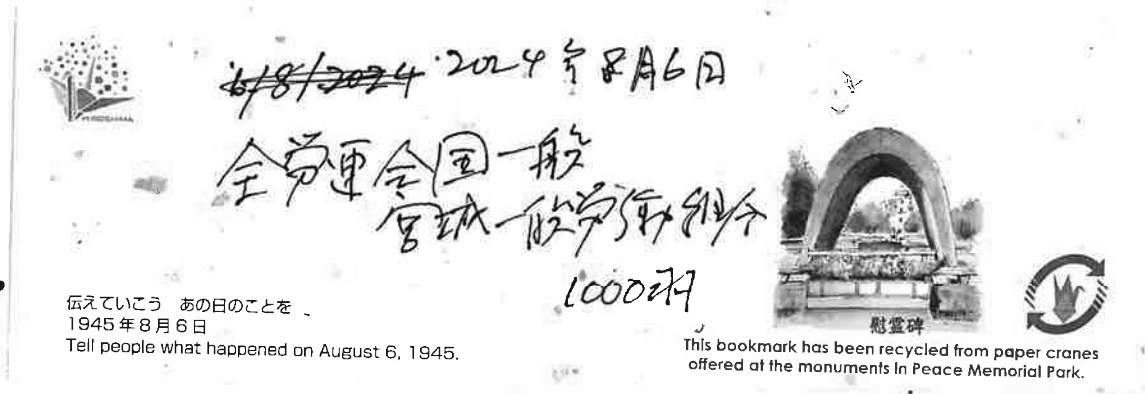 6/8/2024 2024年8月6日
全労連全国一般
宮城一般労働組合
1000羽
HIROSHIMA
伝えていこう あの日のことを
1945年8月6日
Tell people what happened on August 6, 1945.
慰霊碑
This bookmark has been recycled from paper cranes
offered at the monuments in Peace Memorial Park.